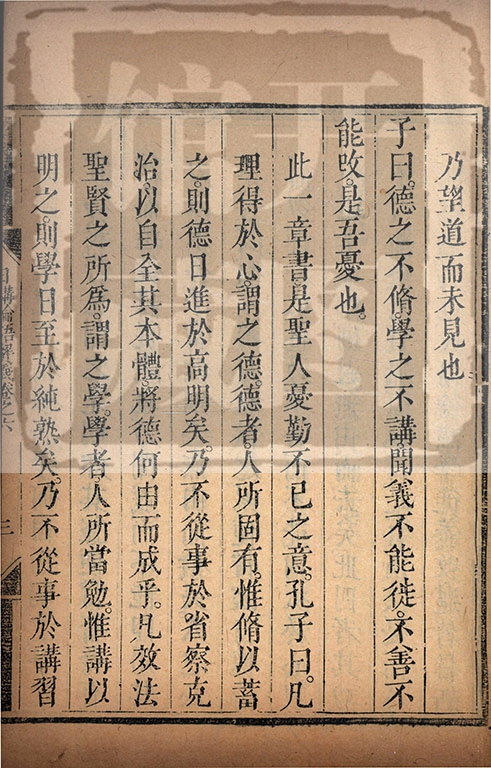 乃望道而未見也
子曰。德之不脩。學之不講。聞義不能徙。不善不
能改。是吾憂也。
此一章書。是聖人憂勤不已之意。孔子曰。凡
理得於心。謂之德。德者。人所固有。惟脩以蓄
之。則德日進於高明矣。乃不從事於省察克
治。以自全其本體。將德何由而成乎。凡效法
聖賢之所為。謂之學。學者。人所當勉。惟講以
明之。則學日至於純熟矣。乃不從事於講習
日講
卷之六
三